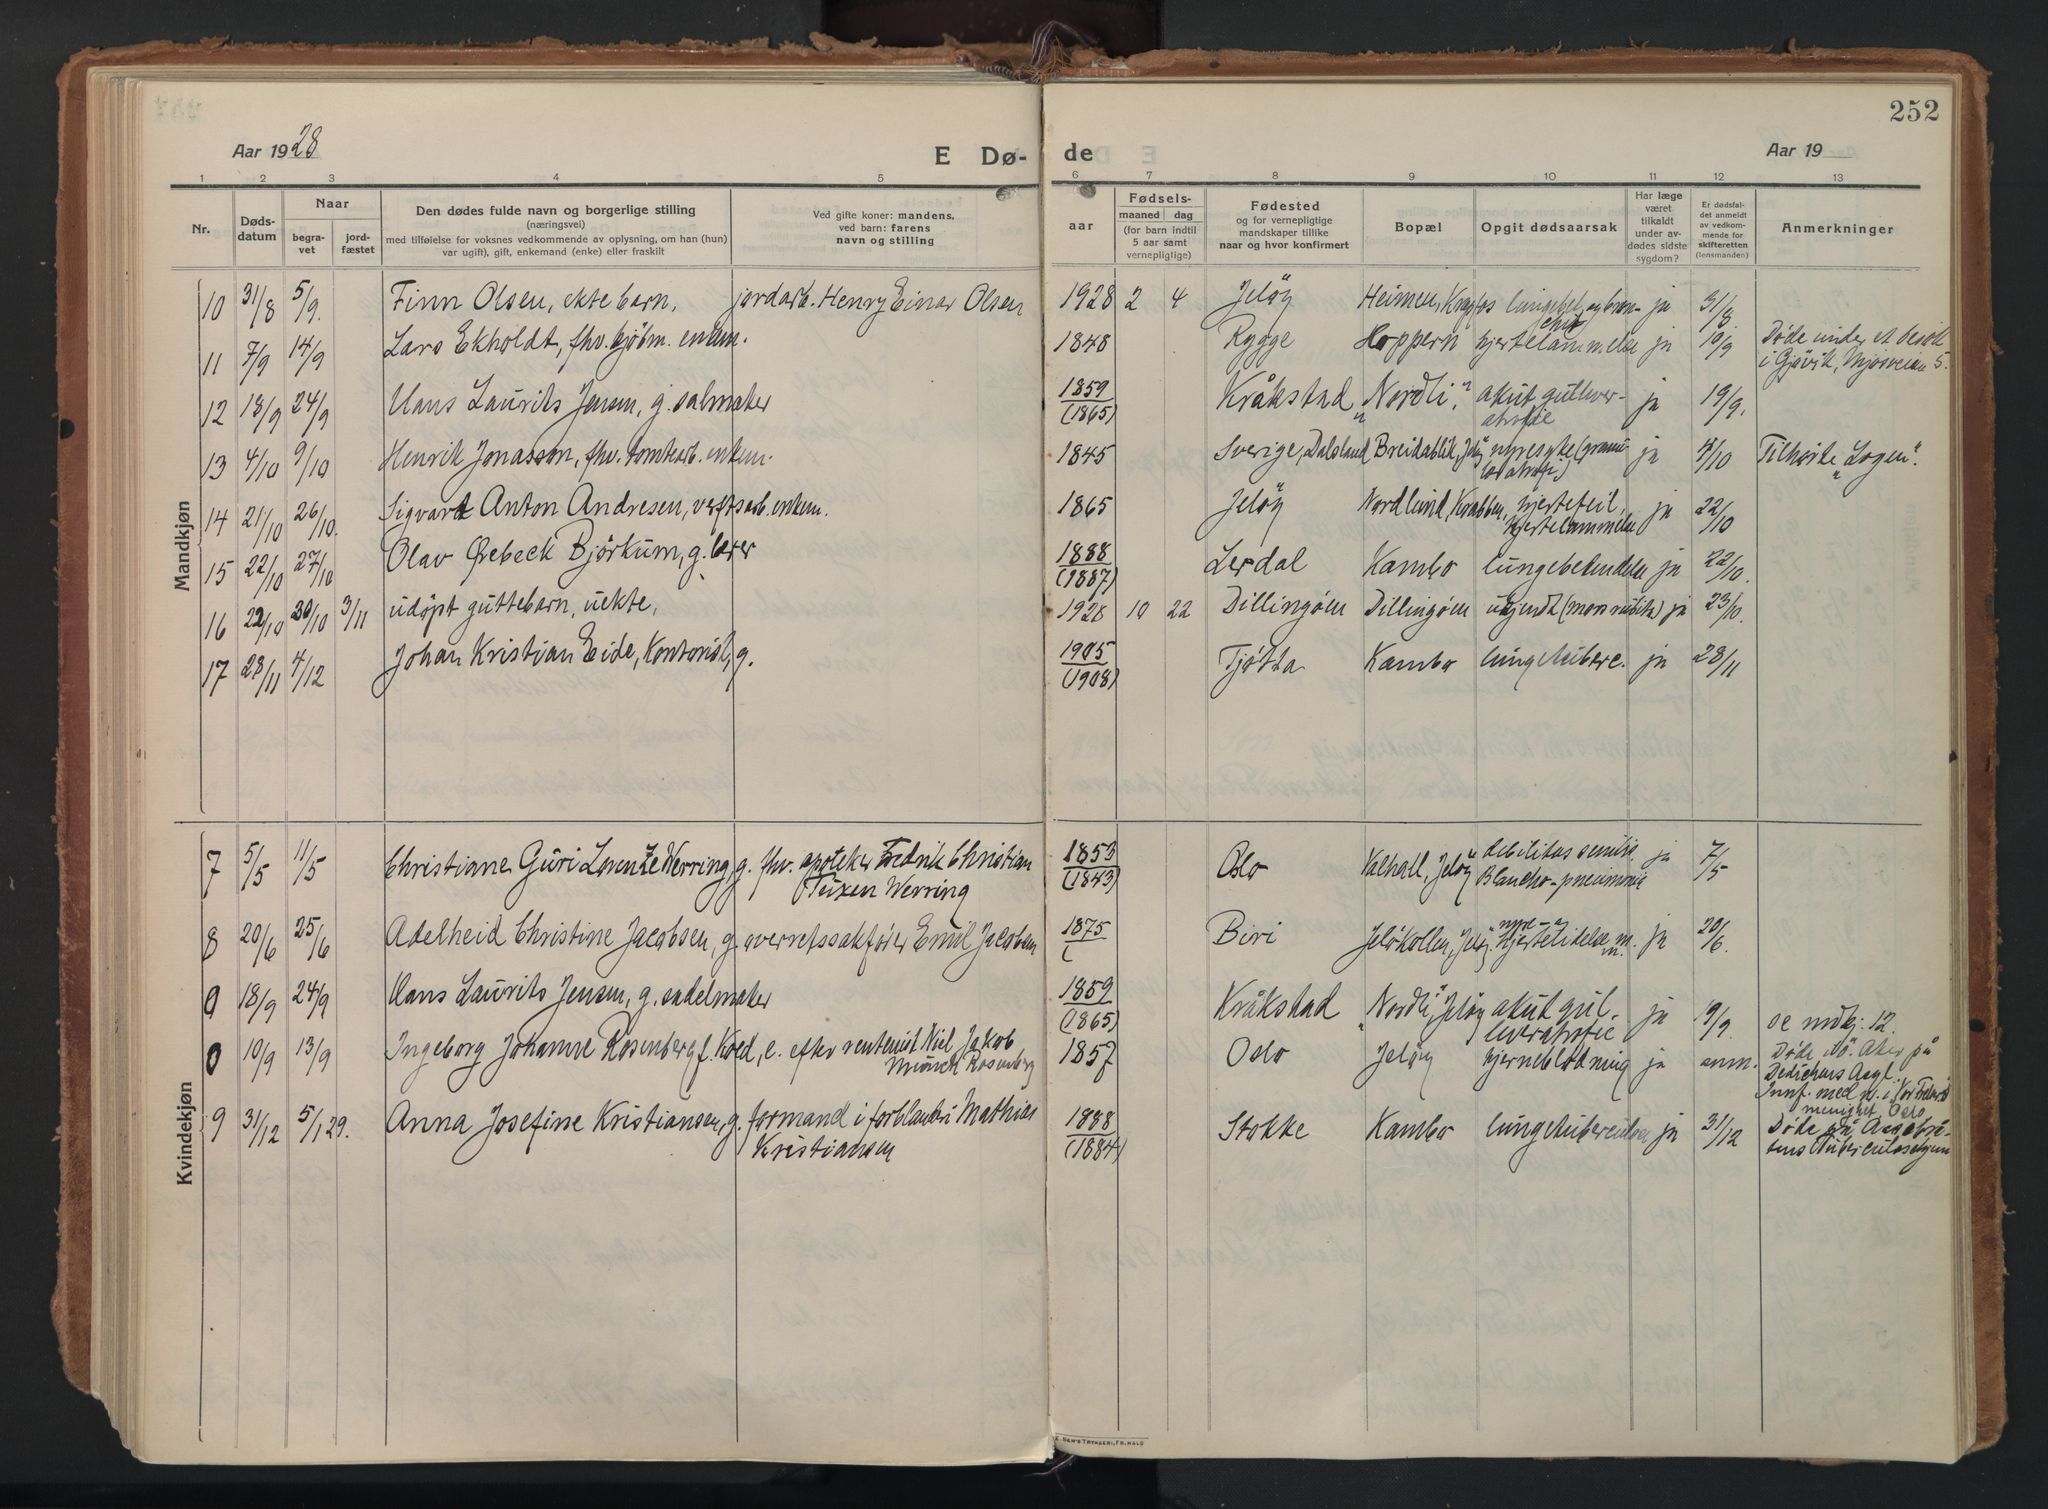 252
Aar 1928
E Dø-
de
Aar 19
1 2 3 4 5 6 7 8 9 10 11 12 13
Nr.
Døds-
datum
Naar
begra-
vet
jord-
fæstet
Den dødes fulde navn og borgerlige stilling
(næringsvei)
med tilføielse for voksnes vedkommende av oplysning, om han (hun)
var ugift), gift, enkemand (enke) eller fraskilt
Ved gifte koner: mandens,
ved barn: farens
navn og stilling
Fødsels-
aar
maaned dag
(for barn indtil
5 aar samt
vernepligtige)
Fødested
og for vernepligtige
mandskaper tillike
naar og hvor konfirmert
Bopæl
Opgit dødsaarsak
Har læge
været
tilkaldt
under av-
dødes sidste
sygdom?
Er dødsfal-
det anmeldt
av vedkom-
mende for
skifteretten
(lensmanden)
Anmerkninger
Mandkjøn
10 31/8 5/9. Finn Olsen, ekte barn, jordarb. Henry Einar Olsen 1928 2 4 Jeløy Heimen, ja 31/8
11 7/9 14/9 Lars Ekholdt, fhv. enkem. 1848 Rygge Hoppern hjertelammelse ja 10/9 Døde under et besøk
i Gjøvik, Mjøsveien 5.
12 18/9 24/9 Hans Laurits Jensen, g. salmaker 1859 Kråkstad "Nordli," akut gullever-
(1865) atrofie ja 19/9.
13 4/10 9/10 Henrik Jonasson, fhv. tomtearb. enkem. 1845 Sverige, Dalsland Breidablik, Jeløy nyresyke (granu-
lar atrofi) ja 4/10 Tilhørte "Logen".
14 21/10 26/10. Sigvard Anton Andresen, verftsarb. enkem. 1865 Jeløy Nordlund, Krabben, hjertefeil,
hjertelammelse ja 22/10
15 22/10 27/10 Olav Ørebeck Bjørkum, g. lærer 1888 Lerdal Kambo lungebetendelse ja 22/10.
(1887)
16 22/10 30/10 3/11 udøpt guttebarn, uekte, 1928 10 22 Dillingøen Dillingøen ukjendt ja 23/10.
17 23/11 4/12 Johan Kristian Eide, Kontorist, g. 1905 Tjøtta Kambo lungetuberc. ja 28/11
(1908)
Kvindekjøn
7 5/5 11/5 Christiane Guri Lorentze Werring, g. fhv. apoteker Fredrik Christian
Tuxen Werring 1853 Oslo Valhall, Jeløy debilitas senilis ja 7/5
(1843) pneumonie
8 20/6 25/6 Adelheid Christine Jacobsen, g. overretssakfører Emil Jacobsen 1875 Biri Jeløkollen, Jeløy. nyre- og
hjertelidelse m. m. ja 20/6.
0 18/9 24/9 Hans Laurits Jensen, g. sadelmaker 1859 Kråkstad "Nordli," Jeløy akut gul.
(1865) leveratrofie ja 19/9. se mdkj. 12.
0 10/9 13/9 Ingeborg Johanne Rosenberg f. Koed, e. efter rentenist Niel Jakob
Münck Rosenberg 1857 Oslo Jeløy hjerneblødning ja anm. Døde i Ø. Aker på
Dedichens Asyl.
Innf. med nr. i Vor Frelsers
menighet, Oslo
9 31/12 5/1 29. Anna Josefine Kristiansen, g. formand i Mathias
Kristiansen 1888 Stokke Kambo lungetuberculose ja 31/12 Døde på
(1884)
E. SEM'S TRYKKERI, FR.HALD